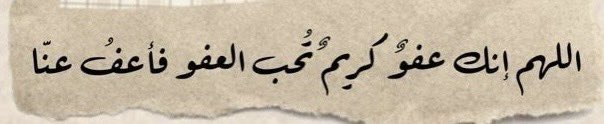 اللهم إنك عفوٌ كريمٌ تُحب العفو فأعفُ عنّا